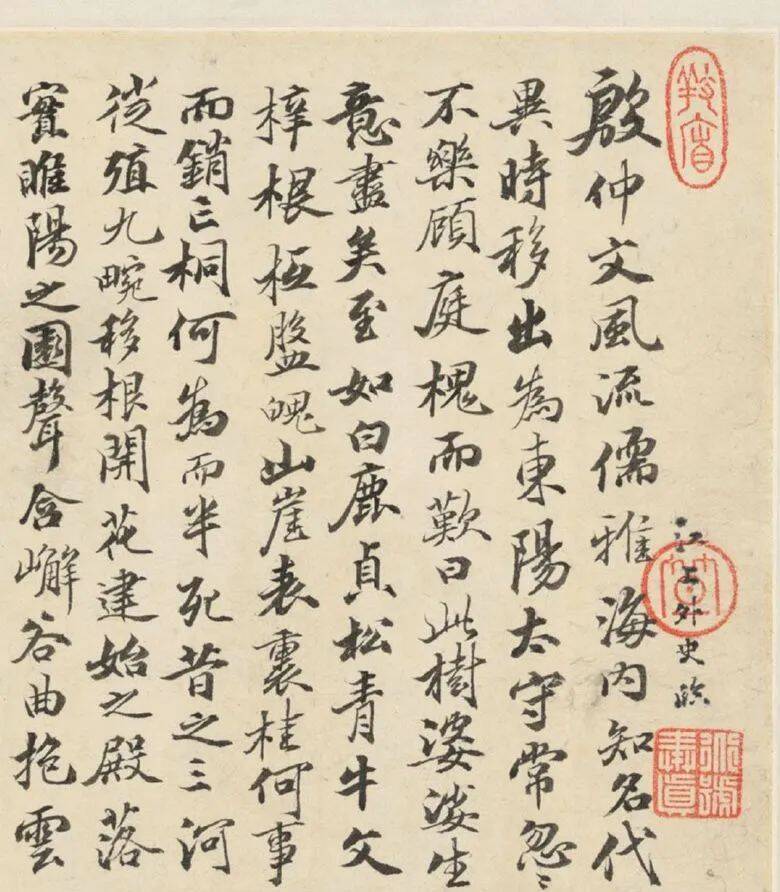 江上外史臨
殷仲文風流儒雅海内知名代
異時移出為東陽太守常忽〻
不樂顧庭槐而歎曰此樹婆娑生
意盡矣至如白鹿貞松青牛文
梓根柢盤魄山崖表裏桂何事
而銷亡桐何為而半死昔之三河
從殖九畹移根開花建始之殿落
實睢陽之園聲含嶰谷曲抱雲